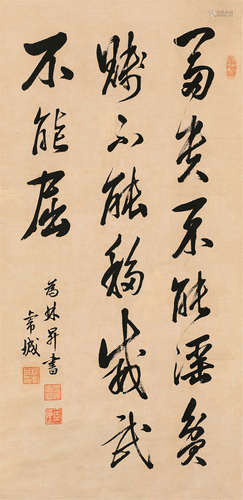 富贵不能淫贫
贱不能移威武
不能屈
为林昇书
常城